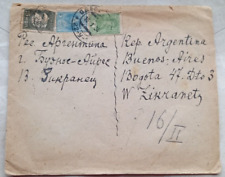 Аргентина
г. Буэнос-Айрес
В. Зикранец
Rep. Argentina
Buenos-Aires
Bogota 77. Dto 3
W Zikranetz
16/II